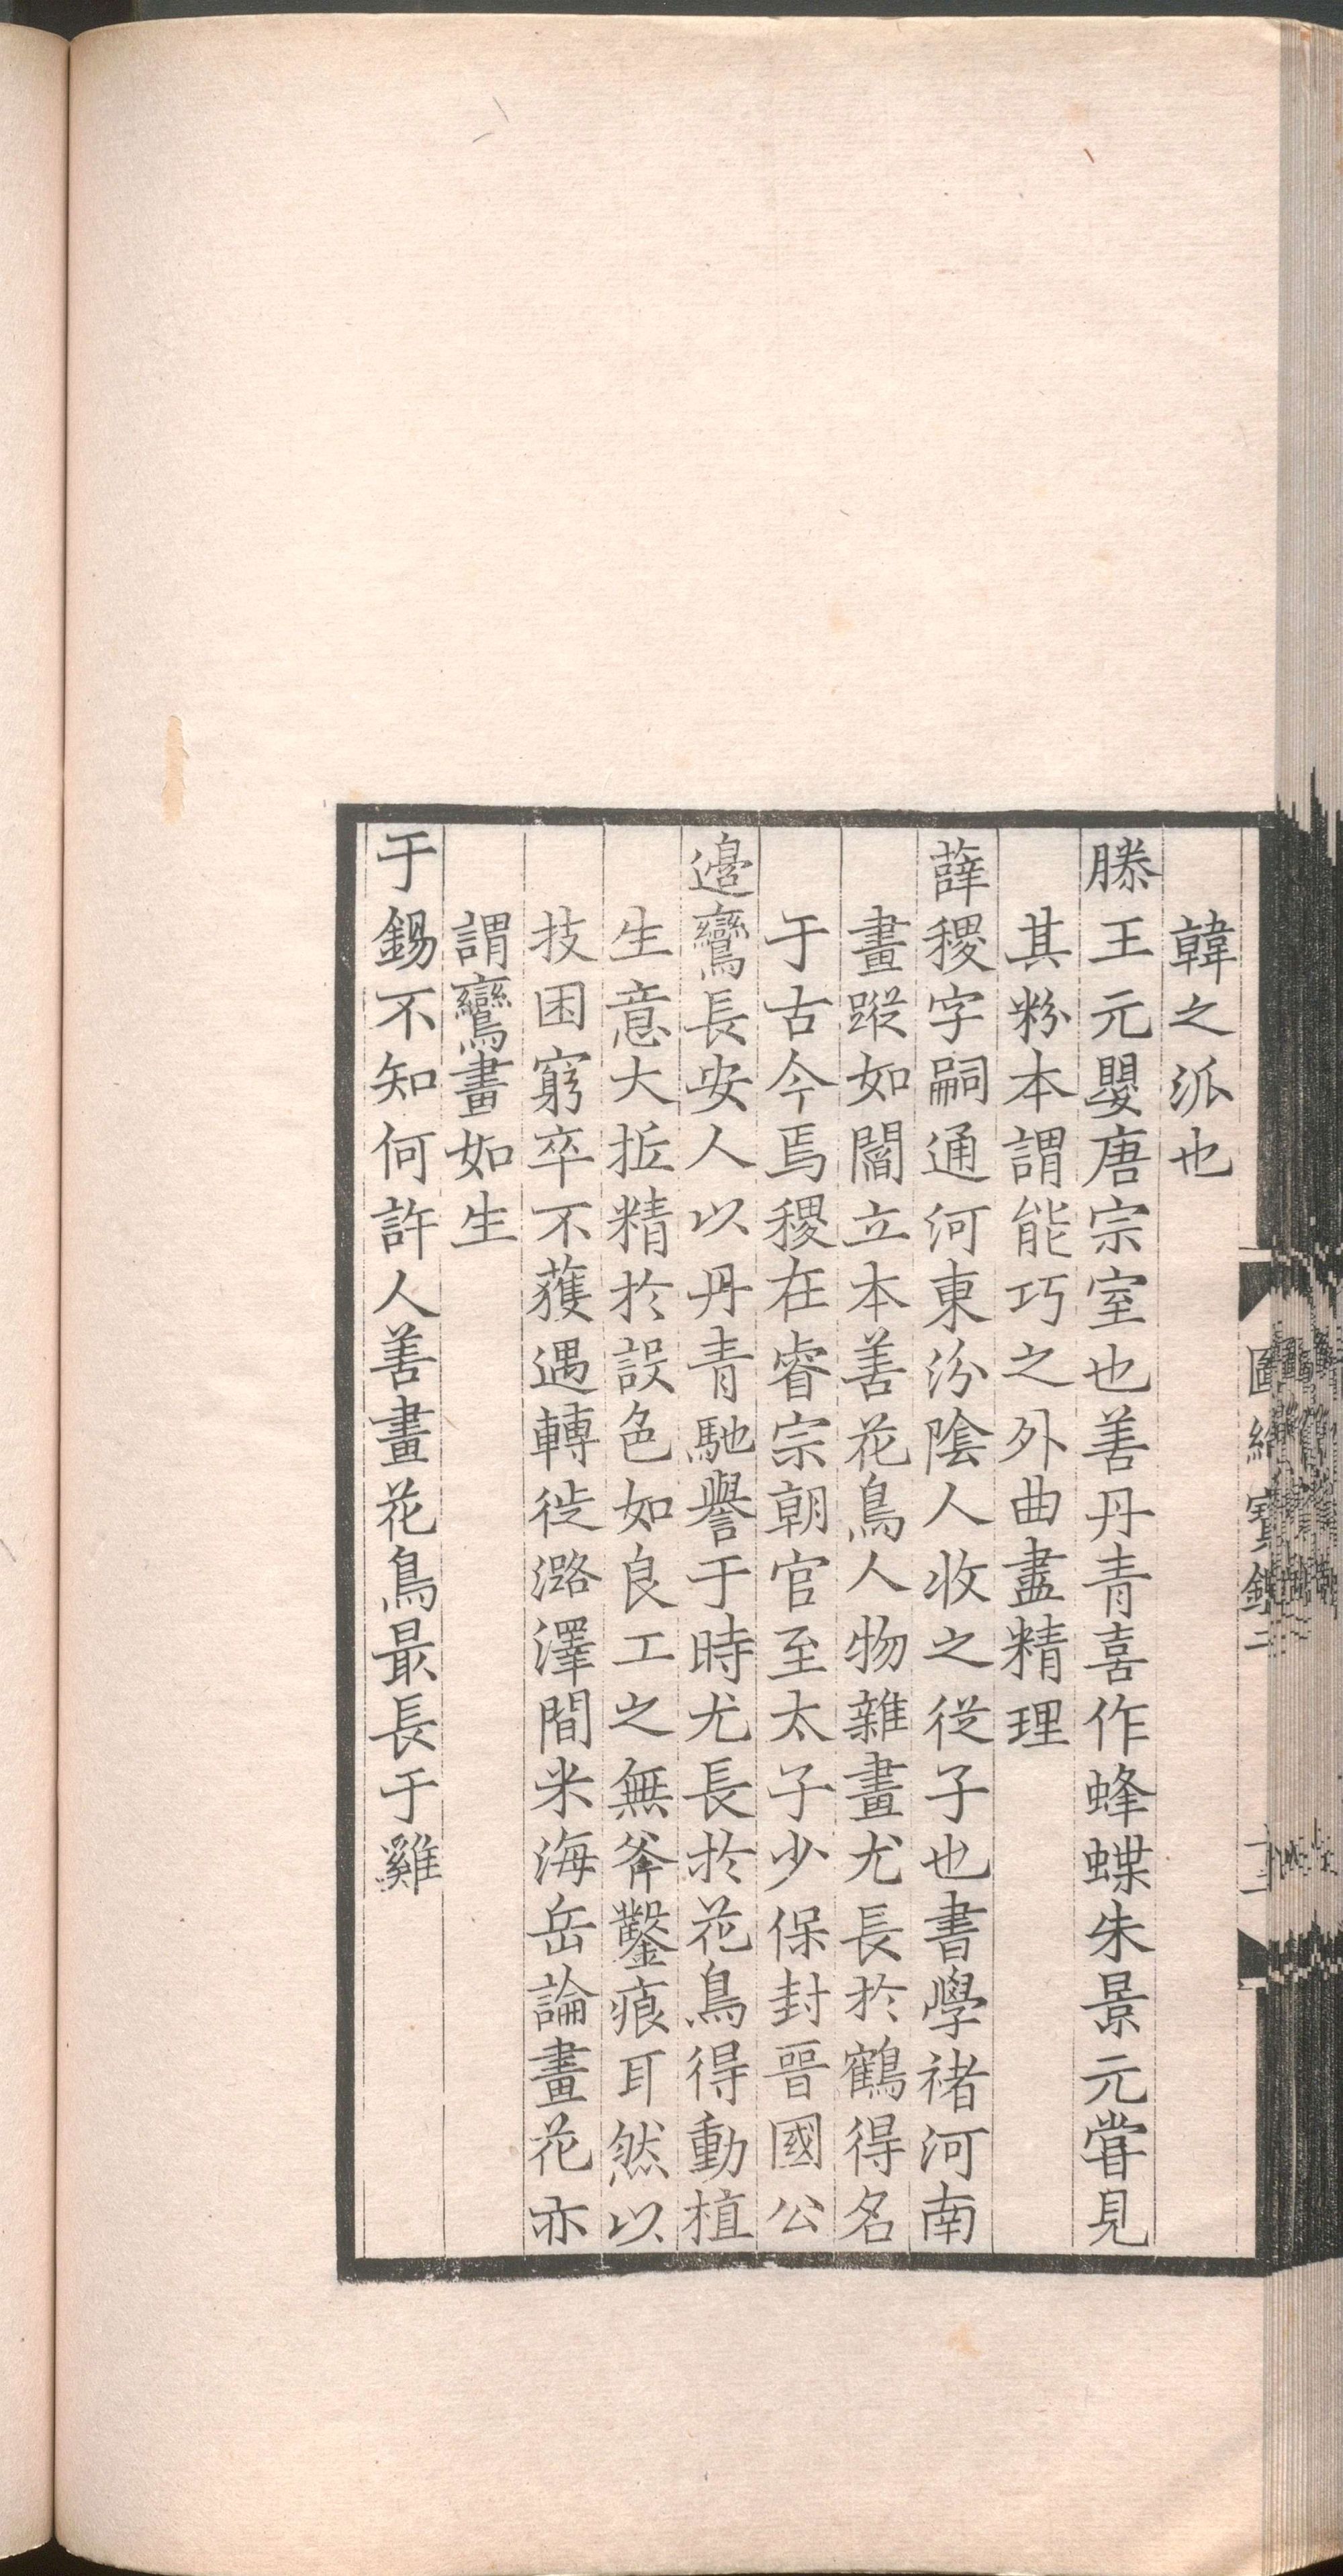 韓之派也
滕王元嬰唐宗室也善丹青喜作蜂蝶朱景元嘗見
其粉本謂能巧之外曲盡精理
薛稷字嗣通河東汾陰人收之從子也書學褚河南
畫蹤如閻立本善花鳥人物雜畫尤長於鶴得名
于古今焉稷在睿宗朝官至太子少保封晉國公
邊鸞長安人以丹青馳譽于時尤長於花鳥得動植
生意大抵精於設色如良工之無斧鑿痕耳然以
技困窮卒不獲遇轉徙潞澤間米海岳論畫花亦
謂鸞畫如生
于錫不知何許人善畫花鳥最長于雞
圖繪寶鑑二